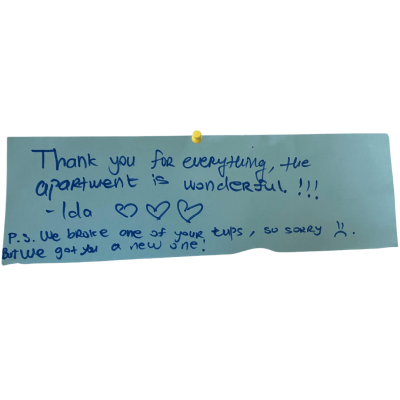 Thank you for everything, the
apartment is wonderful!!!
- Ida ♡♡♡
P.S. We broke one of your cups, so sorry ☹.
But we got you a new one!